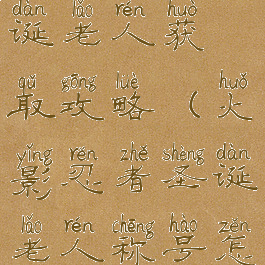 dàn lǎo rén huò
诞老人获
qǔ gōng lüè huǒ
取攻略（火
yǐng rěn zhě shèng dàn
影忍者圣诞
lǎo rén chēng hào zěn
老人称号怎